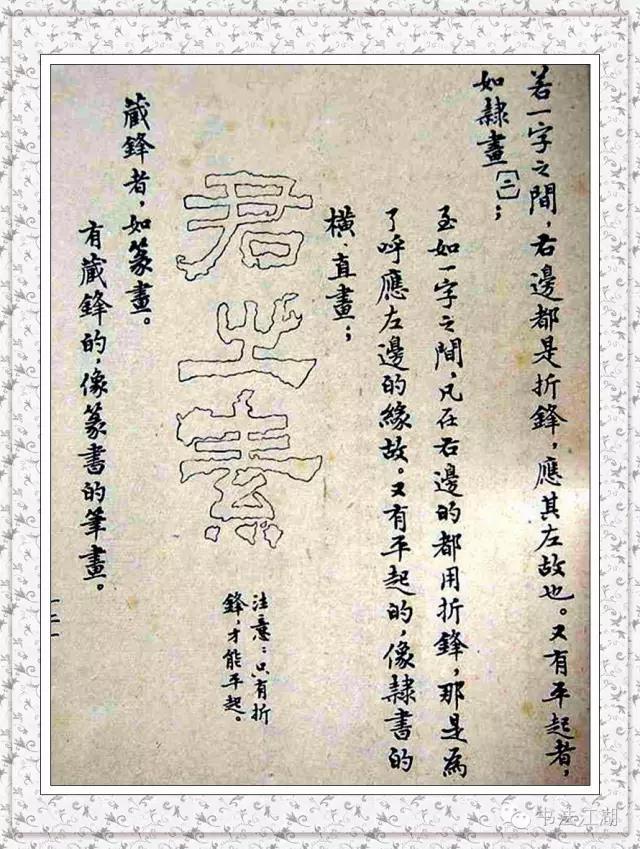 若一字之間，右邊都是折鋒，應其左故也。又有平起者，
如隸畫〔二〕；
至如一字之間，凡在右邊的都用折鋒，那是為
了呼應左邊的緣故。又有平起的，像隸書的
橫、直畫；
君㞢素
注意：只有折
鋒，才能平起。
藏鋒者，如篆畫。
有藏鋒的，像篆書的筆畫。
书法江湖